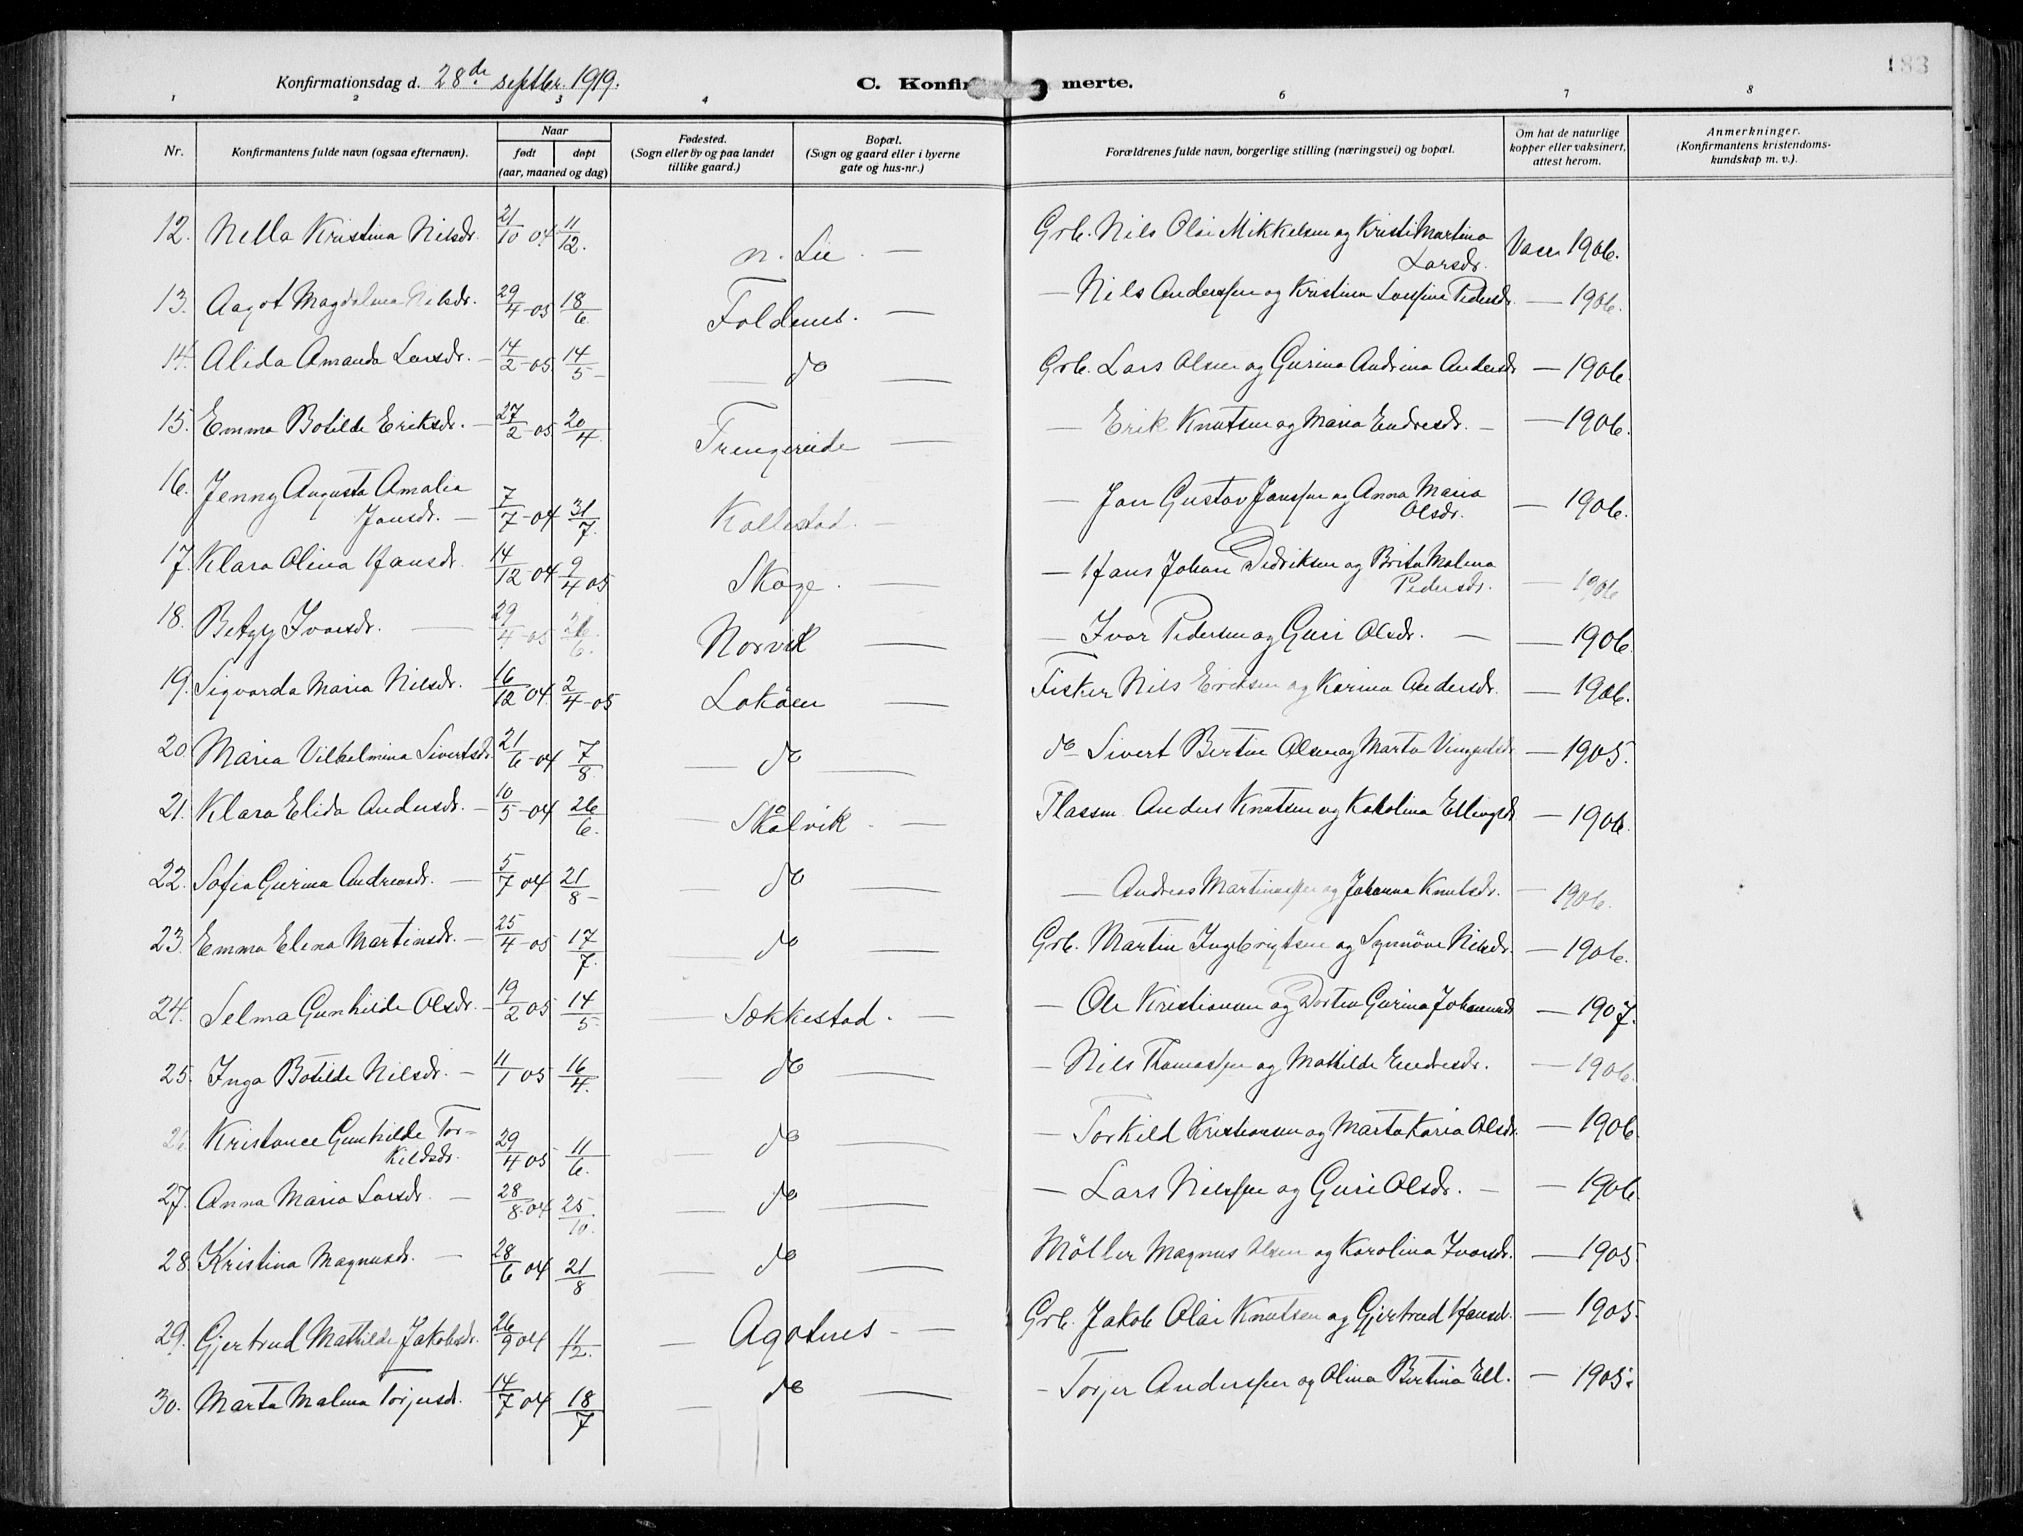 183
Konfirmationsdag d. 28de septbr. 1919.
C. Konfir merte.
1 2 3 4 6 7 8
Nr.
Konfirmantens fulde navn (ogsaa efternavn).
Naar
født døpt
(aar, maaned og dag)
Fødested.
(Sogn eller by og paa landet
tillike gaard.)
Bopæl.
(Sogn og gaard eller i byerne
gate og hus-nr.)
Forældrenes fulde navn, borgerlige stilling (næringsvei) og bopæl.
Om hat de naturlige
kopper eller vaksinert,
attest herom.
Anmerkninger.
(Konfirmantens kristendoms-
kundskap m. v.).
12. Nella Kristina Nilsdr. 21/10 04 11/12. n. Lie — Grb. Nils Olai Mikkelsen og Kristi Martina Larsdr. Vacc 1906.
13. Aagot Magdalena Nilsdr. 29/4-05 18/6 Foldnes. — — Nils Anderssen og Kristina Sossina Pedersdr — 1906.
14. Alida Amanda Larsdr. — 14/2-05 14/5 — do — Grb. Lars Olsen og Gurina Andrina Andersdr — 1906.
15. Emma Botilde Eriksdr. — 27/2-05 20/4 Trengereide — — Erik Knutsen og Maria Endresdr. — — 1906.
16. Jenny Augusta Amalia
Jansdr. — 7/7-04 31/7. Kallestad. — — Jan Gustav Janssen og Anna Maria Olsdr. — 1906.
17. Klara Olina Hansdr. 14/12-04 9/4 05 Skoge. — — Hans Johan Didriksen og Brita Malena Pedersdr. — 1906
18. Betzy Ivarsdr. — 29/4-05 /6. Norvik — — Ivar Pedersen og Guri Olsdr. — — 1906.
19. Sigvarda Maria Nilsdr. 16/12 04. 2/4-05 Lokøen — Fisker Nils Eriksen og Karina Andersdr. — 1906.
20 Maria Vilhelmina Sivertsdr. 21/6-04 7/8 — do — do Sivert Bertin Olsen og Marta — 1905.
21. Klara Elida Andersdr. — 10/5-04 26/6. — Skålvik — Plassm. Anders Knutsen og Karolina Ellingsdr — 1906.
22. Sofia Gurina Andreasdr. — 5/7 04 21/8 — — do — — Andreas Martinussen og Johanna Knutsdr. — 1906.
23. Emma Elena Martinsdr. — 25/4-05 17/7. — do — Grb. Martin Ingebrigtsen og Synnöve Nilsdr. — 1906.
24. Selma Gunhilde Olsdr. — 19/2 05 14/5 — Søkkestad. — — Ole Kristiansen og Dortea Gurina Johannesdr — 1907.
25. Inga Botilde Nilsdr. — 11/1 05 16/4. — do — — Nils Thomassen og Mathilde Endresdr. — 1906.
Kristance Gunhilde Tor-
kildsdr. 29/4 05 11/6. do — — Torkild Kristiansen og Marta Karia Olsdr. — 1906.
27. Anna Maria Larsdr. — 28/8-04 25/10. — do — — Lars Nilssen og Guri Olsdr. — — 1906.
28. Kristina Magnusdr. — 28/6 04 21/8 — do — Møller Magnus Olsen og Karolina Ivarsdr. — 1905.
29. Gjertrud Mathilde Jakobsdr. 26/9 04 11/12. — Agotnes — Grb. Jakob Olai Knutsen og Gjertrud Hansd. — 1905.
30. Marta Malena Torjersdr. 14/7 04 18/7 — do — — Torjer Anderssen og Olina Bertina Ell. — 1905.